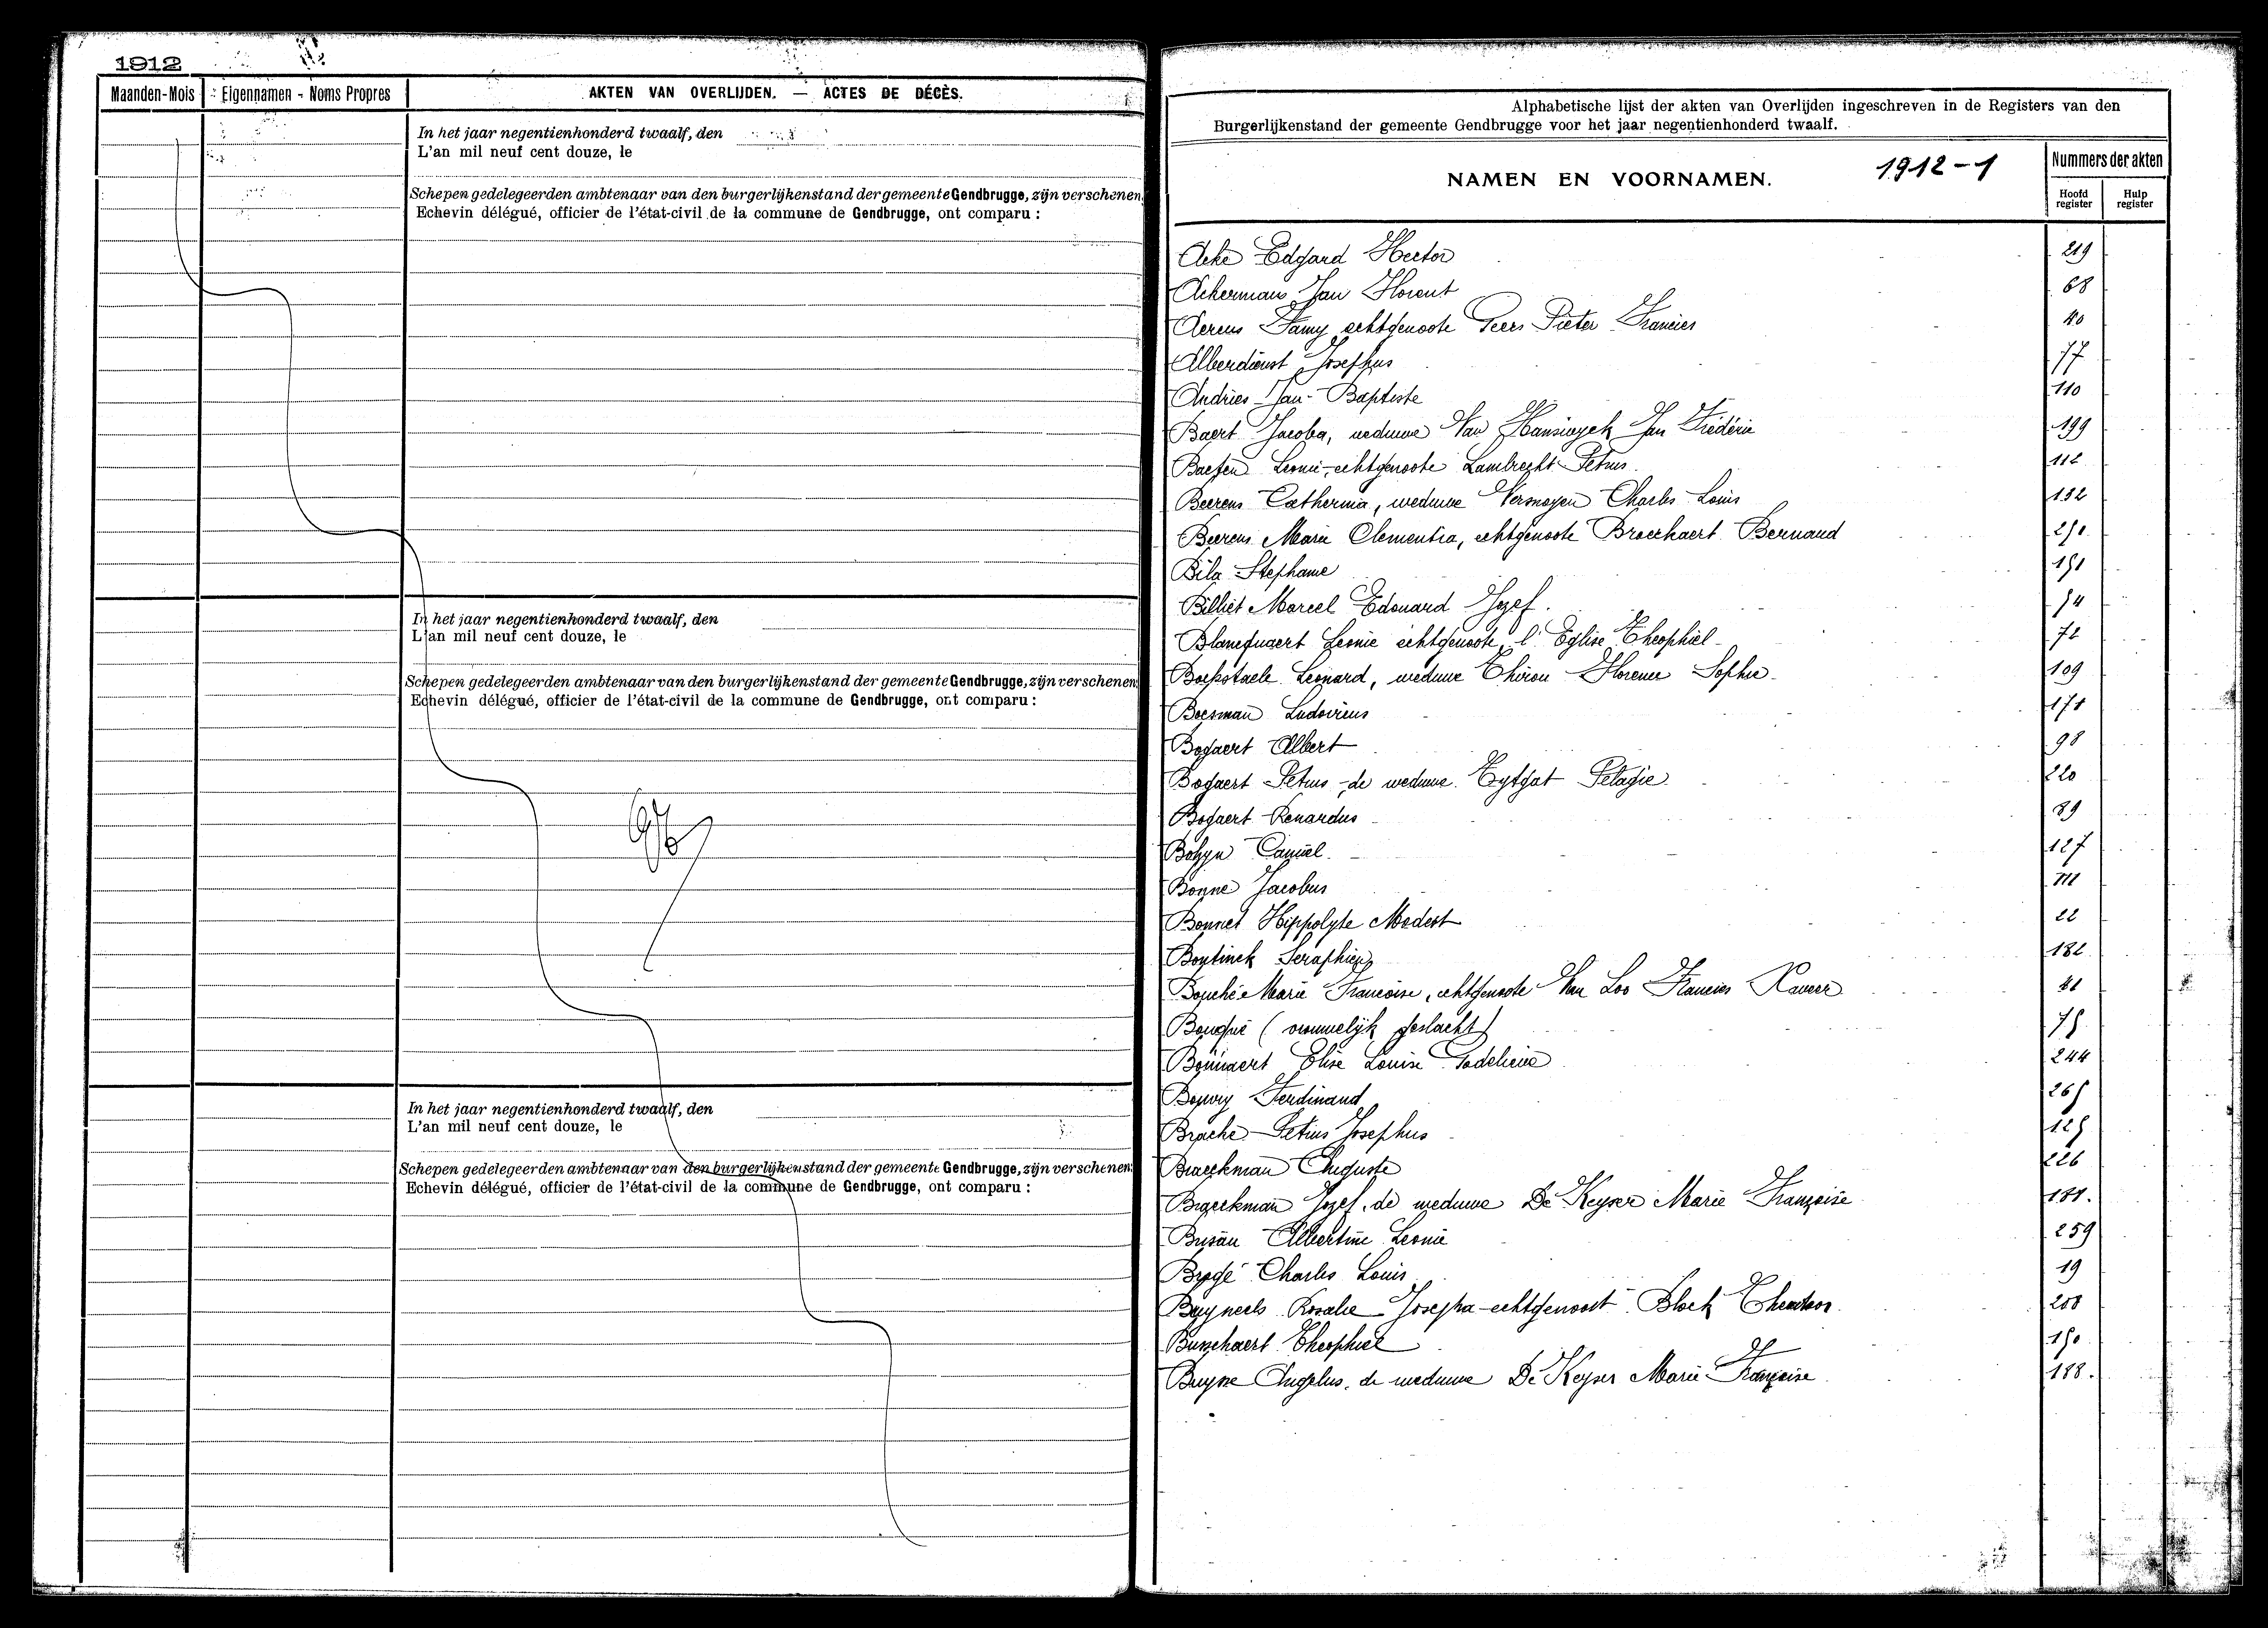 1912
Maanden-Mois
Eigennamen - Noms Propres
AKTEN VAN OVERLIJDEN. — ACTES DE DÉCÈS.
In het jaar negentienhonderd twaalf, den
L'an mil neuf cent douze, le
Schepen gedelegeerden ambtenaar van den burgerlijkenstand der gemeente Gendbrugge, zijn verschenen
Echevin délégué, officier de l'état-civil de la commune de Gendbrugge, ont comparu :
In het jaar negentienhonderd twaalf, den
L'an mil neuf cent douze, le
Schepen gedelegeerden ambtenaar van den burgerlijkenstand der gemeente Gendbrugge, zijn verschenen
Echevin délégué, officier de l'état-civil de la commune de Gendbrugge, ont comparu :
In het jaar negentienhonderd twaalf, den
L'an mil neuf cent douze, le
Schepen gedelegeerden ambtenaar van den burgerlijkenstand der gemeente Gendbrugge, zijn verschenen
Echevin délégué, officier de l'état-civil de la commune de Gendbrugge, ont comparu :
Alphabetische lijst der akten van Overlijden ingeschreven in de Registers van den
Burgerlijkenstand der gemeente Gendbrugge voor het jaar negentienhonderd twaalf.
NAMEN EN VOORNAMEN.
1912-1
Nummers der akten
Hoofd register
Hulp register
Acke Edgard Hector 219
Ackermans Jan Florent 68
Aerens Famy echtgenoote Geers Pieter Francies 40
Alberdienst Josephus 77
Andries Jan-Baptiste 110
Baert Jacoba, weduwe Van Hansinyck Jan Frédéric 199
Baeten Leonie, echtgenoote Lambrecht Petrus 112
Beerens Catherina, weduwe Vermoyen Charles Louis 132
Beerens Marie Clementia, echtgenoote Broeckaert Bernard 251
Bila Stephanie 151
Billiet Marcel Edouard Jozef. 54
Blanequaert Leonie echtgenoote l'Eglise Theophiel 72
Boekstaele Leonard, weduwe Thirou Florence Sophie 109
Boesman Ludovicus 171
Bogaert Albert 98
Bogaert Petrus, de weduwe Eytgat Pelagie 220
Bogaert Renardus 89
Bohyn Camiel 127
Bonne Jacobus
Bonnet Hippolyte Modest 22
Bontinck Seraphien 182
Bouché Marie Francoise, echtgenoote Van Loo Francies Xaveer
Bouqué (vrouwelijk geslacht) 75
Elise Louise Godelieve 244
Ferdinand 265
Brache Petrus Josephus 125
Braeckman Auguste 226
Braeckman Jozef, de weduwe De Keyser Marie Françoise 181.
Busau Albertine Leonie 259
Charles Louis 19
Bruyneels Rosalie Josepha echtgenoot Block Theodoor 208
Theophiel 150
Buyse Angelus, de weduwe De Keyser Marie Françoise 188.